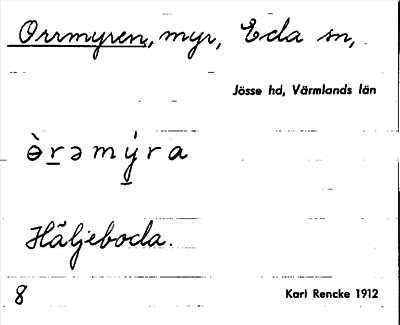 Orrmyren, myr, Eda sn,
Jösse hd, Värmlands län
ɵ̀r̲əmý̲ra
Häljeboda.
8
Karl Rencke 1912